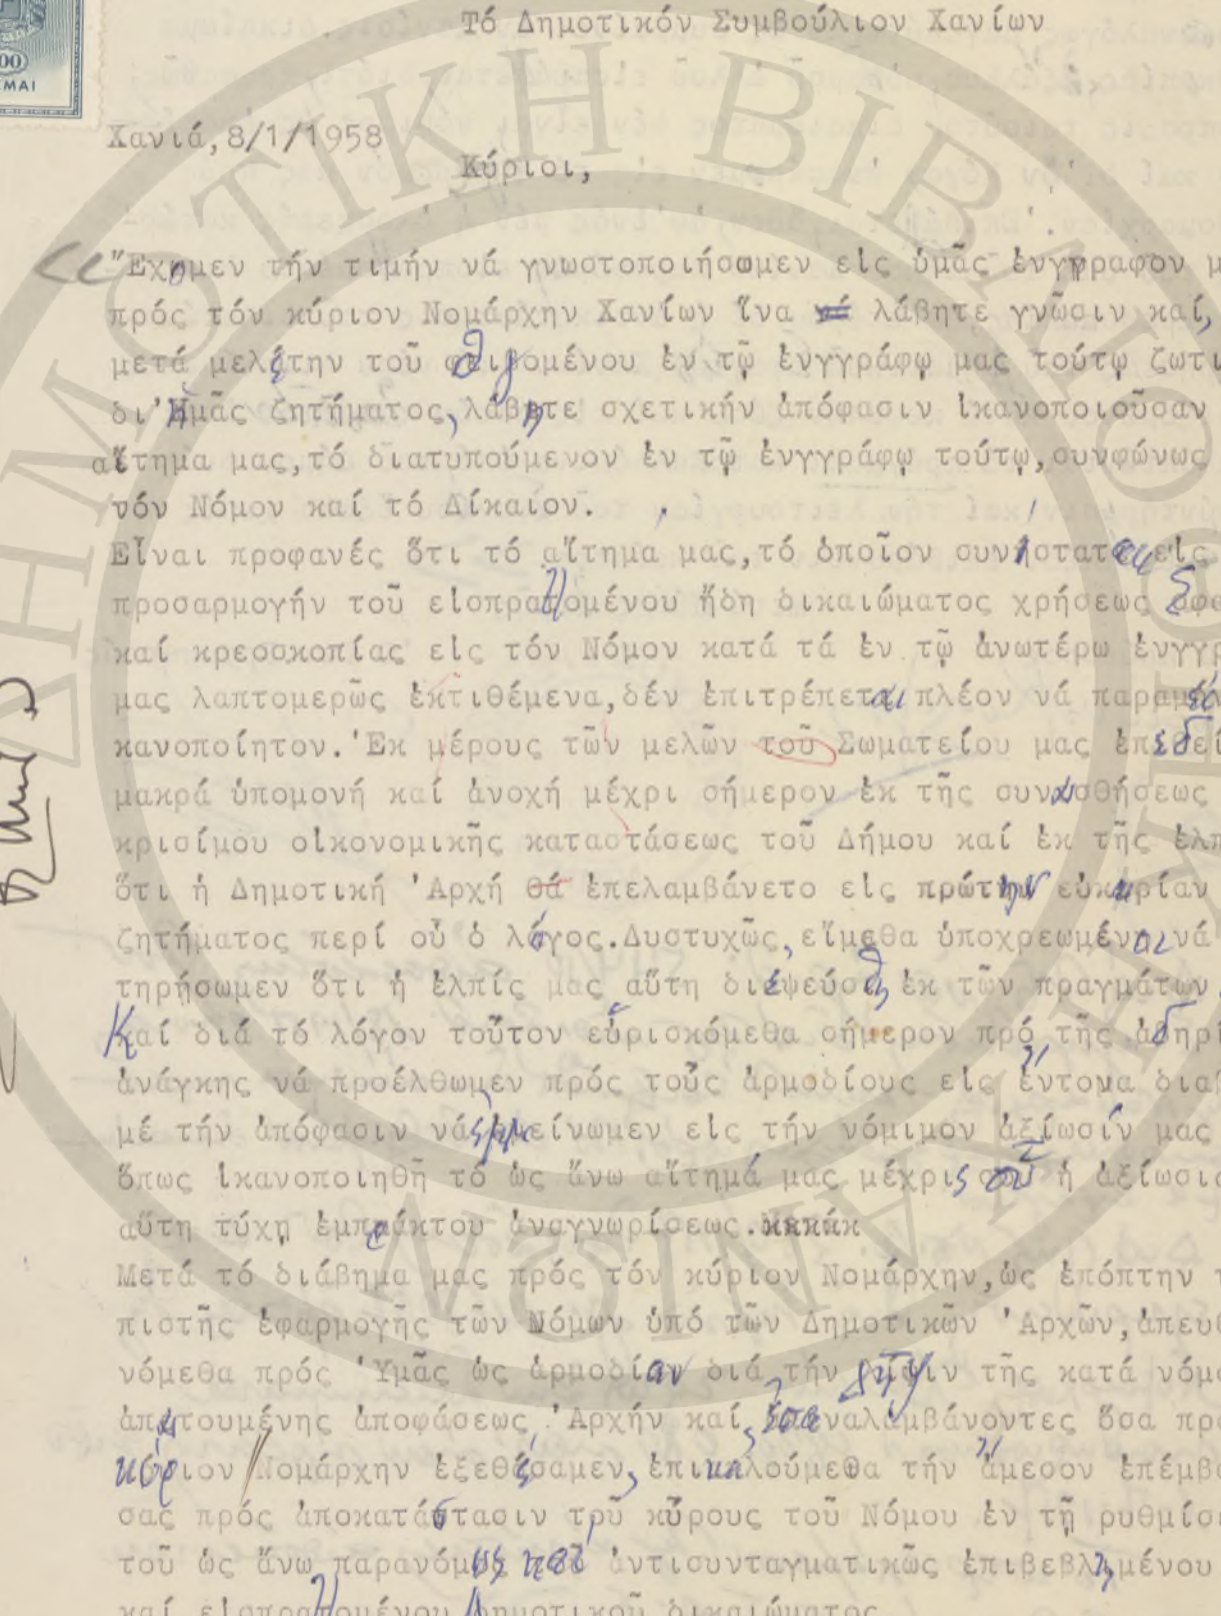 Τό Δημοτικόν Συμβούλιον Χανίων
00
ΜΑΙ
Χανιά,8/1/1958
Κύριοι,
"Εχομεν τήν τιμήν νά γνωστοποιήσωμεν είς ὑμᾶς ἐνγγραφον μ
πρός τόν κύριον Νομάρχην Χανίων ἵνα λάβητε γνῶσιν καί,
μετά μελέτην τοῦ θιγομένου ἐν τῷ ἐνγγράφῳ μας τούτῳ ζωτι
δι'Ημᾶς ζητήματος, λάβητε σχετικήν ἀπόφασιν ἱκανοποιοῦσαν
αἴτημα μας,τό διατυπούμενον ἐν τῷ ἐνγγράφῳ τούτῳ,συνφώνως
τόν Νόμον καί τό Δίκαιον.
Εἶναι προφανές ὅτι τό αἴτημα μας,τό ὁποῖον συνίσταται είς
προσαρμογήν τοῦ είσπραττομένου ἤδη δικαιώματος χρήσεως σφα
καί κρεοσκοπίας είς τόν Νόμον κατά τά ἐν τῷ ἀνωτέρω ἐνγγρ
μας λαπτομερῶς ἐκτιθέμενα,δέν ἐπιτρέπεται πλέον νά παραμέν
κανοποίητον.'Εκ μέρους τῶν μελῶν τοῦ Σωματείου μας ἐπεδεί
μακρά ὑπομονή καί ἀνοχή μέχρι σήμερον ἐκ τῆς συναισθήσεως
κρισίμου οἰκονομικῆς καταστάσεως τοῦ Δήμου καί ἐκ τῆς ἐλπ
ὅτι ἡ Δημοτική 'Αρχή θά ἐπελαμβάνετο είς πρώτην εὐκαιρίαν
ζητήματος περί οὗ ὁ λόγος.Δυστυχῶς, εἴμεθα ὑποχρεωμέναι νά
τηρήσωμεν ὅτι ἡ ἐλπίς μας αὕτη διεψεύσθη ἐκ τῶν πραγμάτων.
Καί διά τό λόγον τοῦτον εὑρισκόμεθα σήμερον πρό τῆς ἀδηρί
ἀνάγκης νά προέλθωμεν πρός τούς ἁρμοδίους είς ἔντονα διαβ
μέ τήν ἀπόφασιν νά ἐμμείνωμεν είς τήν νόμιμον ἀξίωσίν μας
ὅπως ἱκανοποιηθῆ τό ὡς ἄνω αἴτημά μας μέχρις οὗ ἡ ἀξίωσις
αὕτη τύχῃ ἐμπράκτου ἀναγνωρίσεως.
Μετά τό διάβημα μας πρός τόν κύριον Νομάρχην,ὡς ἐπόπτην τ
πιστῆς ἐφαρμογῆς τῶν Νόμων ὑπό τῶν Δημοτικῶν 'Αρχῶν,ἀπευθ
νόμεθα πρός 'Υμᾶς ὡς ἁρμοδίαν διά τήν λῆψιν τῆς κατά νόμο
ἀπαιτουμένης ἀποφάσεως 'Αρχήν καί, ἐπαναλαμβάνοντες ὅσα πρό
κύριον Νομάρχην ἐξεθέσαμεν, ἐπικαλούμεθα τήν ἄμεσον ἐπέμβα
σας πρός ἀποκατάστασιν τοῦ κύρους τοῦ Νόμου ἐν τῆ ρυθμίσε
τοῦ ὡς ἄνω παρανόμως καί ἀντισυνταγματικῶς ἐπιβεβλημένου
καί είσπραττομένου Δημοτικοῦ δικαιώματος.
ΔΗΜΟΤΙΚΗ ΒΙΒΛΙΟΘΗΚΗ ΧΑΝΙΩΝ